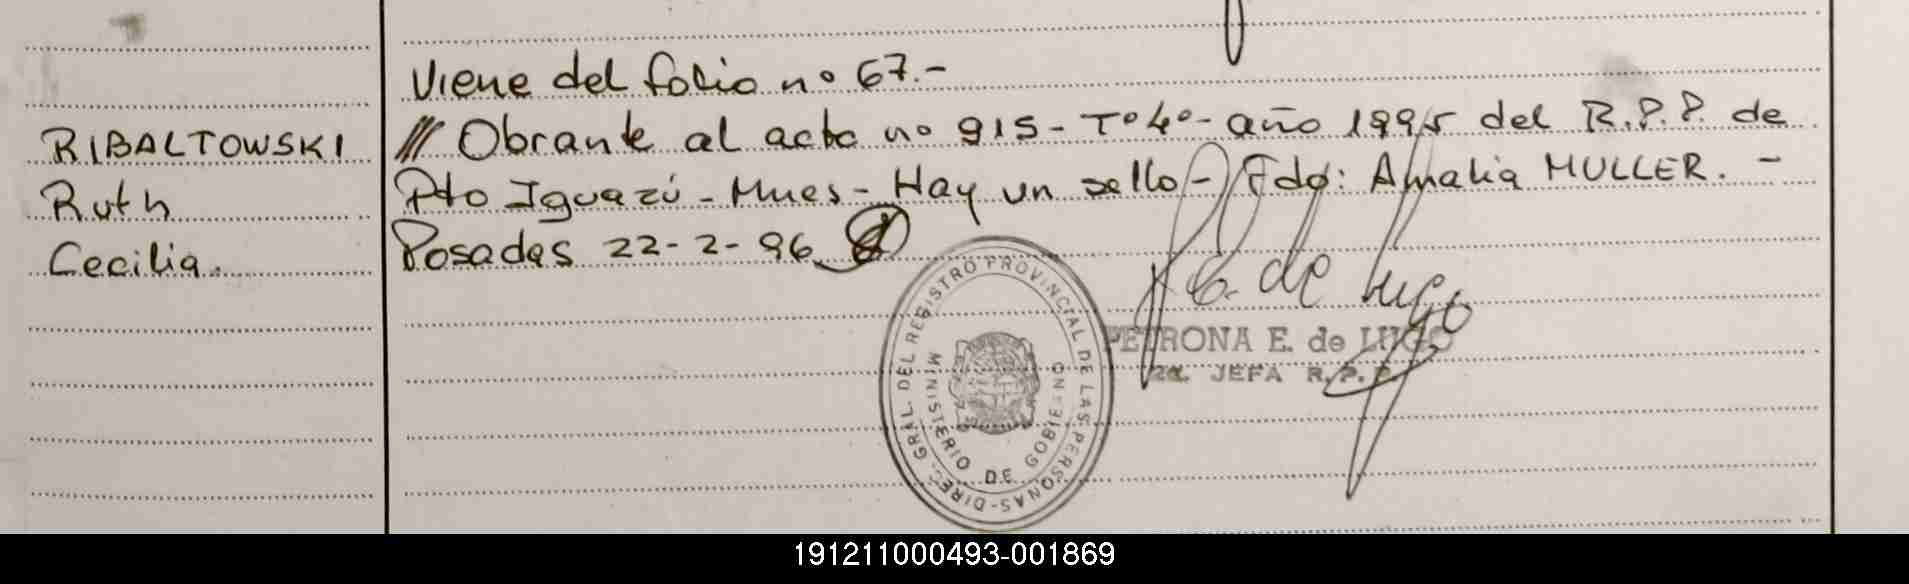 Viene del folio nº 67.-
RIBALTOWSKI
/// Obrante al acta nº 915 - Tº 4º - año 1995 del R.P.P. de
Ruth
Pto Iguazú - Mnes - Hay un sello - Fdo: Amalia MULLER. -
Cecilia.
Posadas 22-2-96
P. E. de Lugo
PETRONA E. de LUGO
2a. JEFA R.P.P.
DIREC. GRAL. DEL REGISTRO PROVINCIAL DE LAS PERSONAS -
MINISTERIO DE GOBIERNO
191211000493-001869